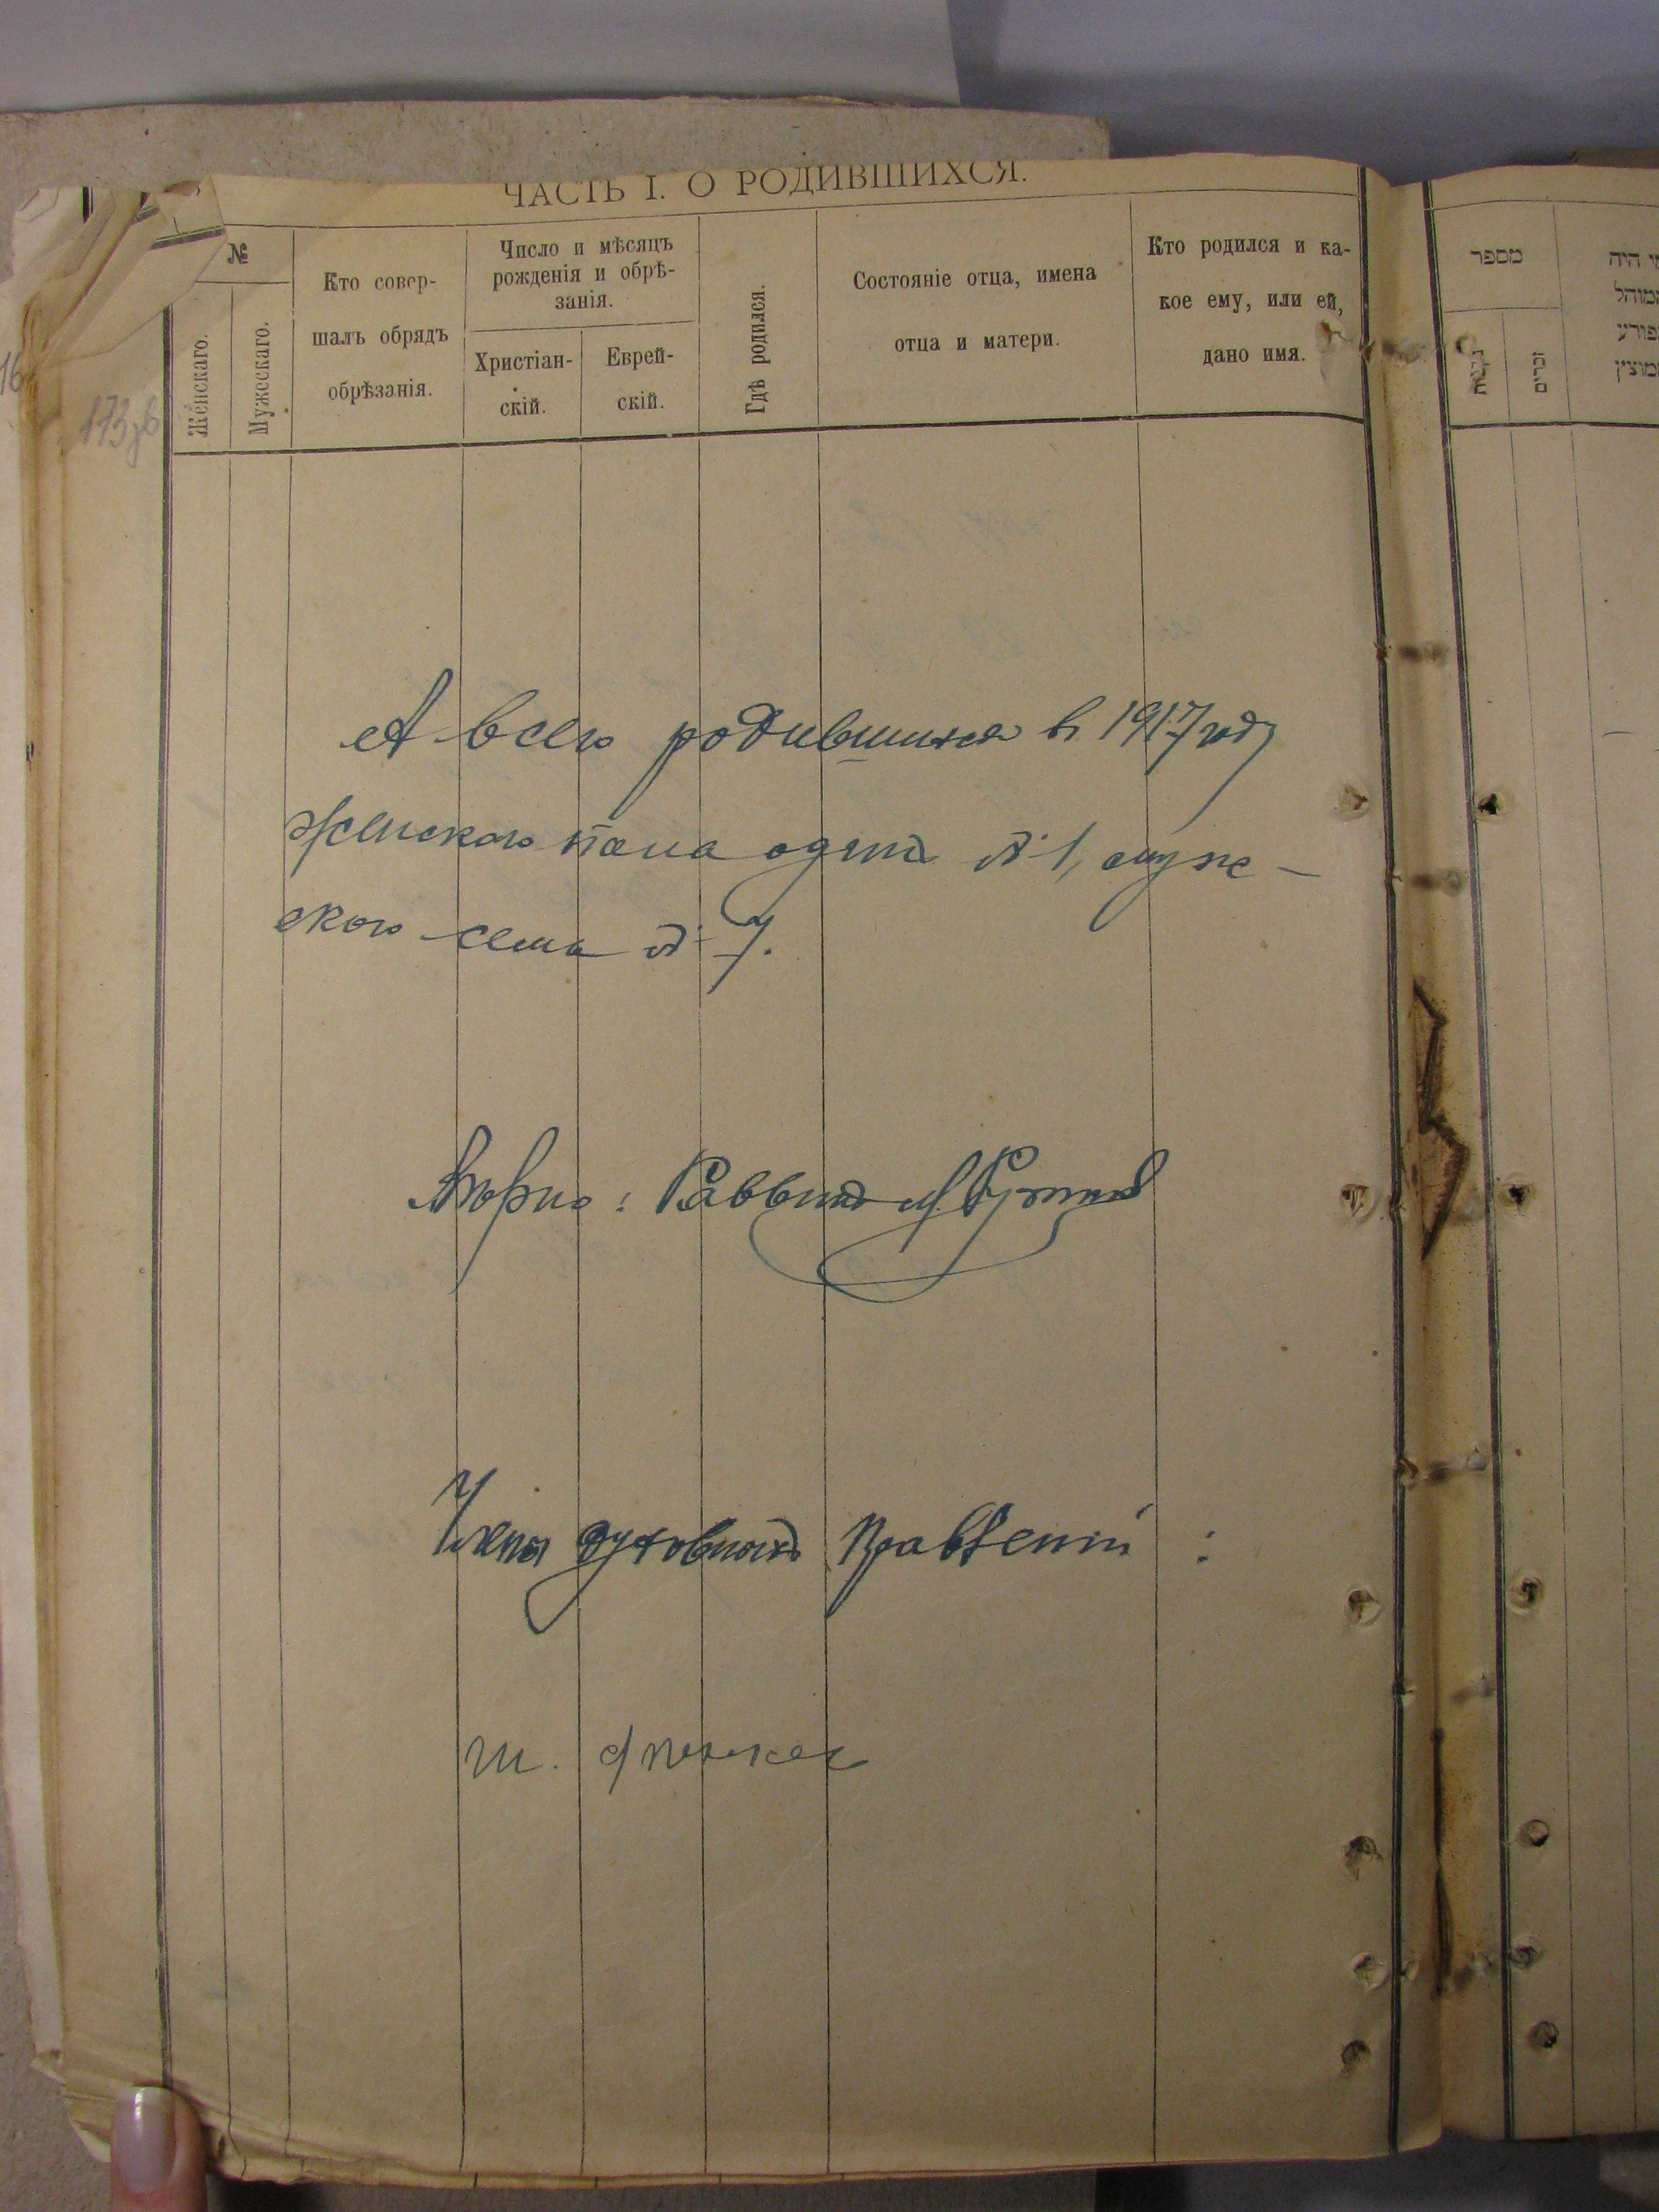 ЧАСТЬ I. О РОДИВШИХСЯ.
№
Женскаго.
Мужескаго.
Кто совер-
шалъ обрядъ
обрѣзанія.
Число и мѣсяцъ
рожденія и обрѣ-
занія.
Христіан-
скій.
Еврей-
скій.
Гдѣ родился.
Состояніе отца, имена
отца и матери.
Кто родился и ка-
кое ему, или ей,
дано имя.
מספר
זכרים
173
А всего родившихся в 1917 году
женскаго пола одна № 1, муже-
скаго семь № 7.
Вѣрно: Раввинъ
Члены духовныхъ Правленій:
Ш.